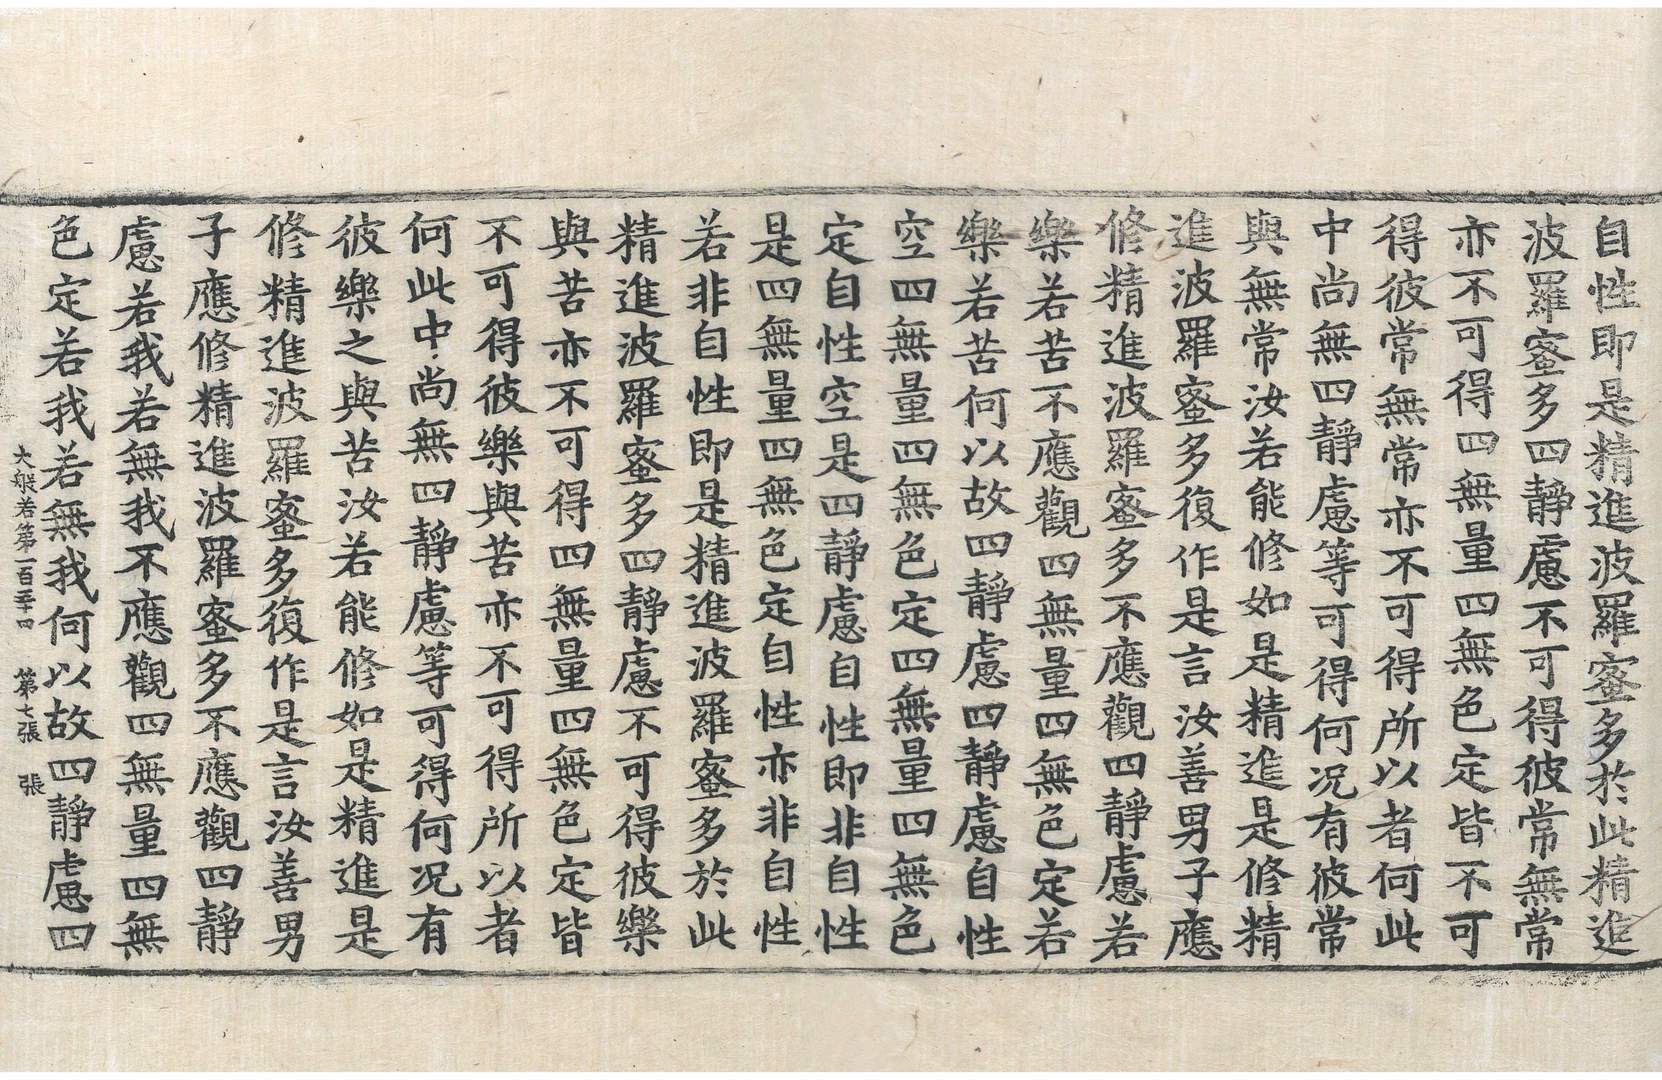 自性即是精進波羅蜜多於此精進
波羅蜜多四靜慮不可得彼常無常
亦不可得四無量四無色定皆不可
得彼常無常亦不可得所以者何此
中尚無四靜慮等可得何况有彼常
與無常汝若能修如是精進是修精
進波羅蜜多復作是言汝善男子應
修精進波羅蜜多不應觀四靜慮若
樂若苦不應觀四無量四無色定若
樂若苦何以故四靜慮四靜慮自性
空四無量四無色定四無量四無色
定自性空是四靜慮自性即非自性
是四無量四無色定自性亦非自性
若非自性即是精進波羅蜜多於此
精進波羅蜜多四靜慮不可得彼樂
與苦亦不可得四無量四無色定皆
不可得彼樂與苦亦不可得所以者
何此中尚無四靜慮等可得何况有
彼樂之與苦汝若能修如是精進是
修精進波羅蜜多復作是言汝善男
子應修精進波羅蜜多不應觀四靜
慮若我若無我不應觀四無量四無
色定若我若無我何以故四靜慮四
大般若第一百五十四 第七張 張